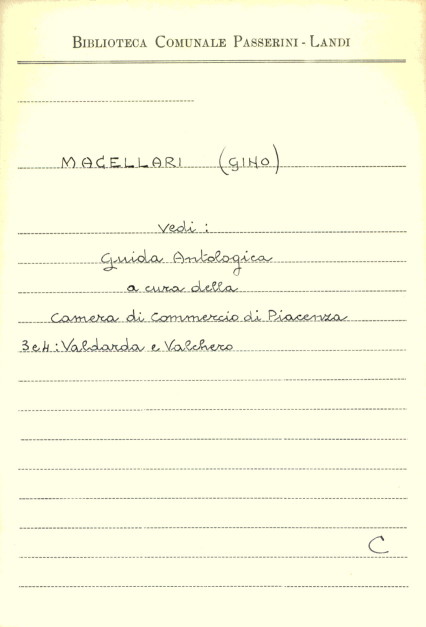 BIBLIOTECA COMUNALE PASSERINI - LANDI
MACELLARI (GINO)
vedi :
Guida Antologica
a cura della
Camera di Commercio di Piacenza
3e4 : Valdarda e Valchero
C